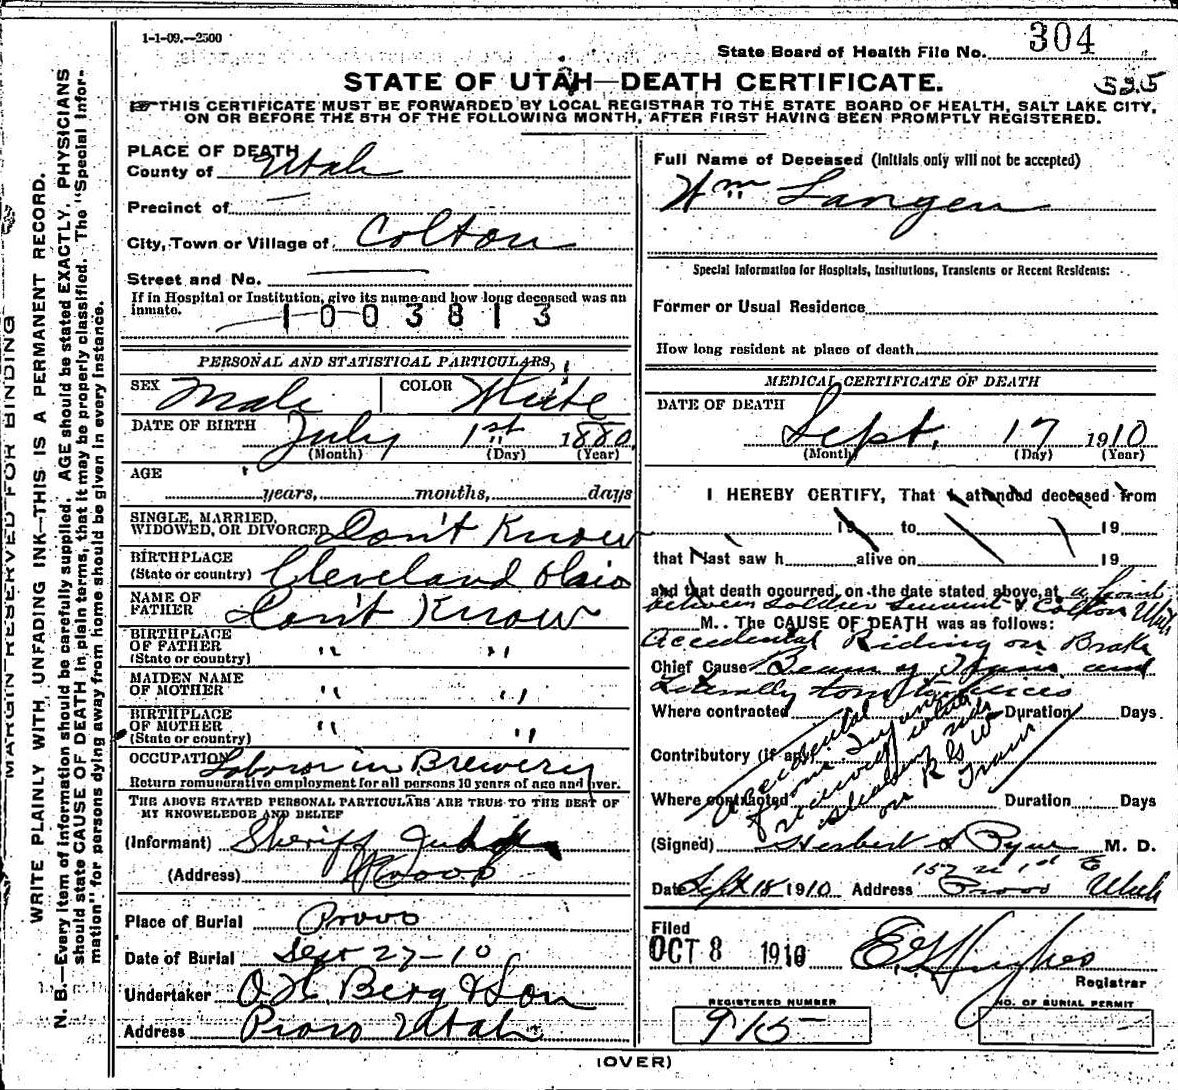 1-1-09.—2500
State Board of Health File No. 304
STATE OF UTAH—DEATH CERTIFICATE.
535
THIS CERTIFICATE MUST BE FORWARDED BY LOCAL REGISTRAR TO THE STATE BOARD OF HEALTH, SALT LAKE CITY,
ON OR BEFORE THE 5TH OF THE FOLLOWING MONTH, AFTER FIRST HAVING BEEN PROMPTLY REGISTERED.
MARGIN RESERVED FOR BINDING
WRITE PLAINLY WITH UNFADING INK—THIS IS A PERMANENT RECORD.
N. B.—Every item of information should be carefully supplied. AGE should be stated EXACTLY. PHYSICIANS
should state CAUSE OF DEATH in plain terms, that it may be properly classified. The "Special Infor-
mation" for persons dying away from home should be given in every instance.
PLACE OF DEATH
County of Utah
Precinct of —
City, Town or Village of Colton
Street and No. —
If in Hospital or Institution, give its name and how long deceased was an
inmate.
1003813
PERSONAL AND STATISTICAL PARTICULARS
SEX Male COLOR White
DATE OF BIRTH July 1st 1880
(Month) (Day) (Year)
AGE
years, months, days
SINGLE, MARRIED,
WIDOWED, OR DIVORCED Don't Know
BIRTHPLACE
(State or country) Cleveland Ohio
NAME OF
FATHER Don't Know
BIRTHPLACE
OF FATHER " "
(State or country)
MAIDEN NAME
OF MOTHER " "
BIRTHPLACE
OF MOTHER " "
(State or country)
OCCUPATION Labor in Brewery
Return remunerative employment for all persons 10 years of age and over.
THE ABOVE STATED PERSONAL PARTICULARS ARE TRUE TO THE BEST OF
MY KNOWLEDGE AND BELIEF
(Informant) Sheriff Judd
(Address) Provo
Place of Burial Provo
Date of Burial Sept 27-10
Undertaker O.H. Berg & Son
Address Provo Utah
Full Name of Deceased (initials only will not be accepted)
Wm Langen
Special Information for Hospitals, Institutions, Transients or Recent Residents:
Former or Usual Residence
How long resident at place of death
MEDICAL CERTIFICATE OF DEATH
DATE OF DEATH
Sept. 17 1910
(Month) (Day) (Year)
I HEREBY CERTIFY, That I attended deceased from
19 to 19
that I last saw h alive on 19
and that death occurred, on the date stated above, at a point
between Soldier Summit & Colton Utah
M. The CAUSE OF DEATH was as follows:
Accidental Riding on Brake
Chief Cause Beam of Train and
Literally torn to pieces
Where contracted Duration Days
Contributory (if any)
Where contracted Duration Days
Accidental
from Injury
received while
stealing ride
on R G W
Train
(Signed) Herbert S Pyne M. D.
157 N 1st E
Date Sept 18 1910 Address Provo Utah
Filed
OCT 8 1910 E G Hughes
Registrar
REGISTERED NUMBER NO. OF BURIAL PERMIT
915 —
(OVER)